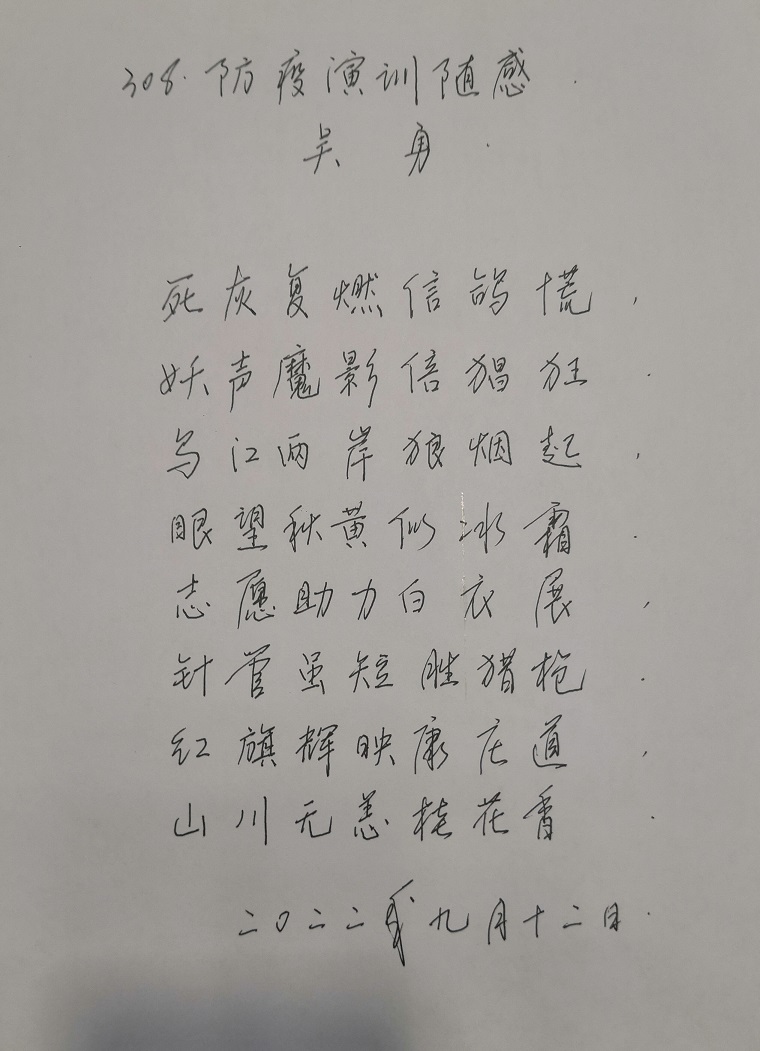 308.防疫演训随感
吴 勇
死灰复燃信鸽慌，
妖声魔影倍猖狂.
乌江两岸狼烟起，
眼望秋黄似冰霜.
志愿助力白衣展，
针管虽短胜猎枪.
红旗辉映康庄道，
山川无恙桂花香.
二〇二二年九月十二日.